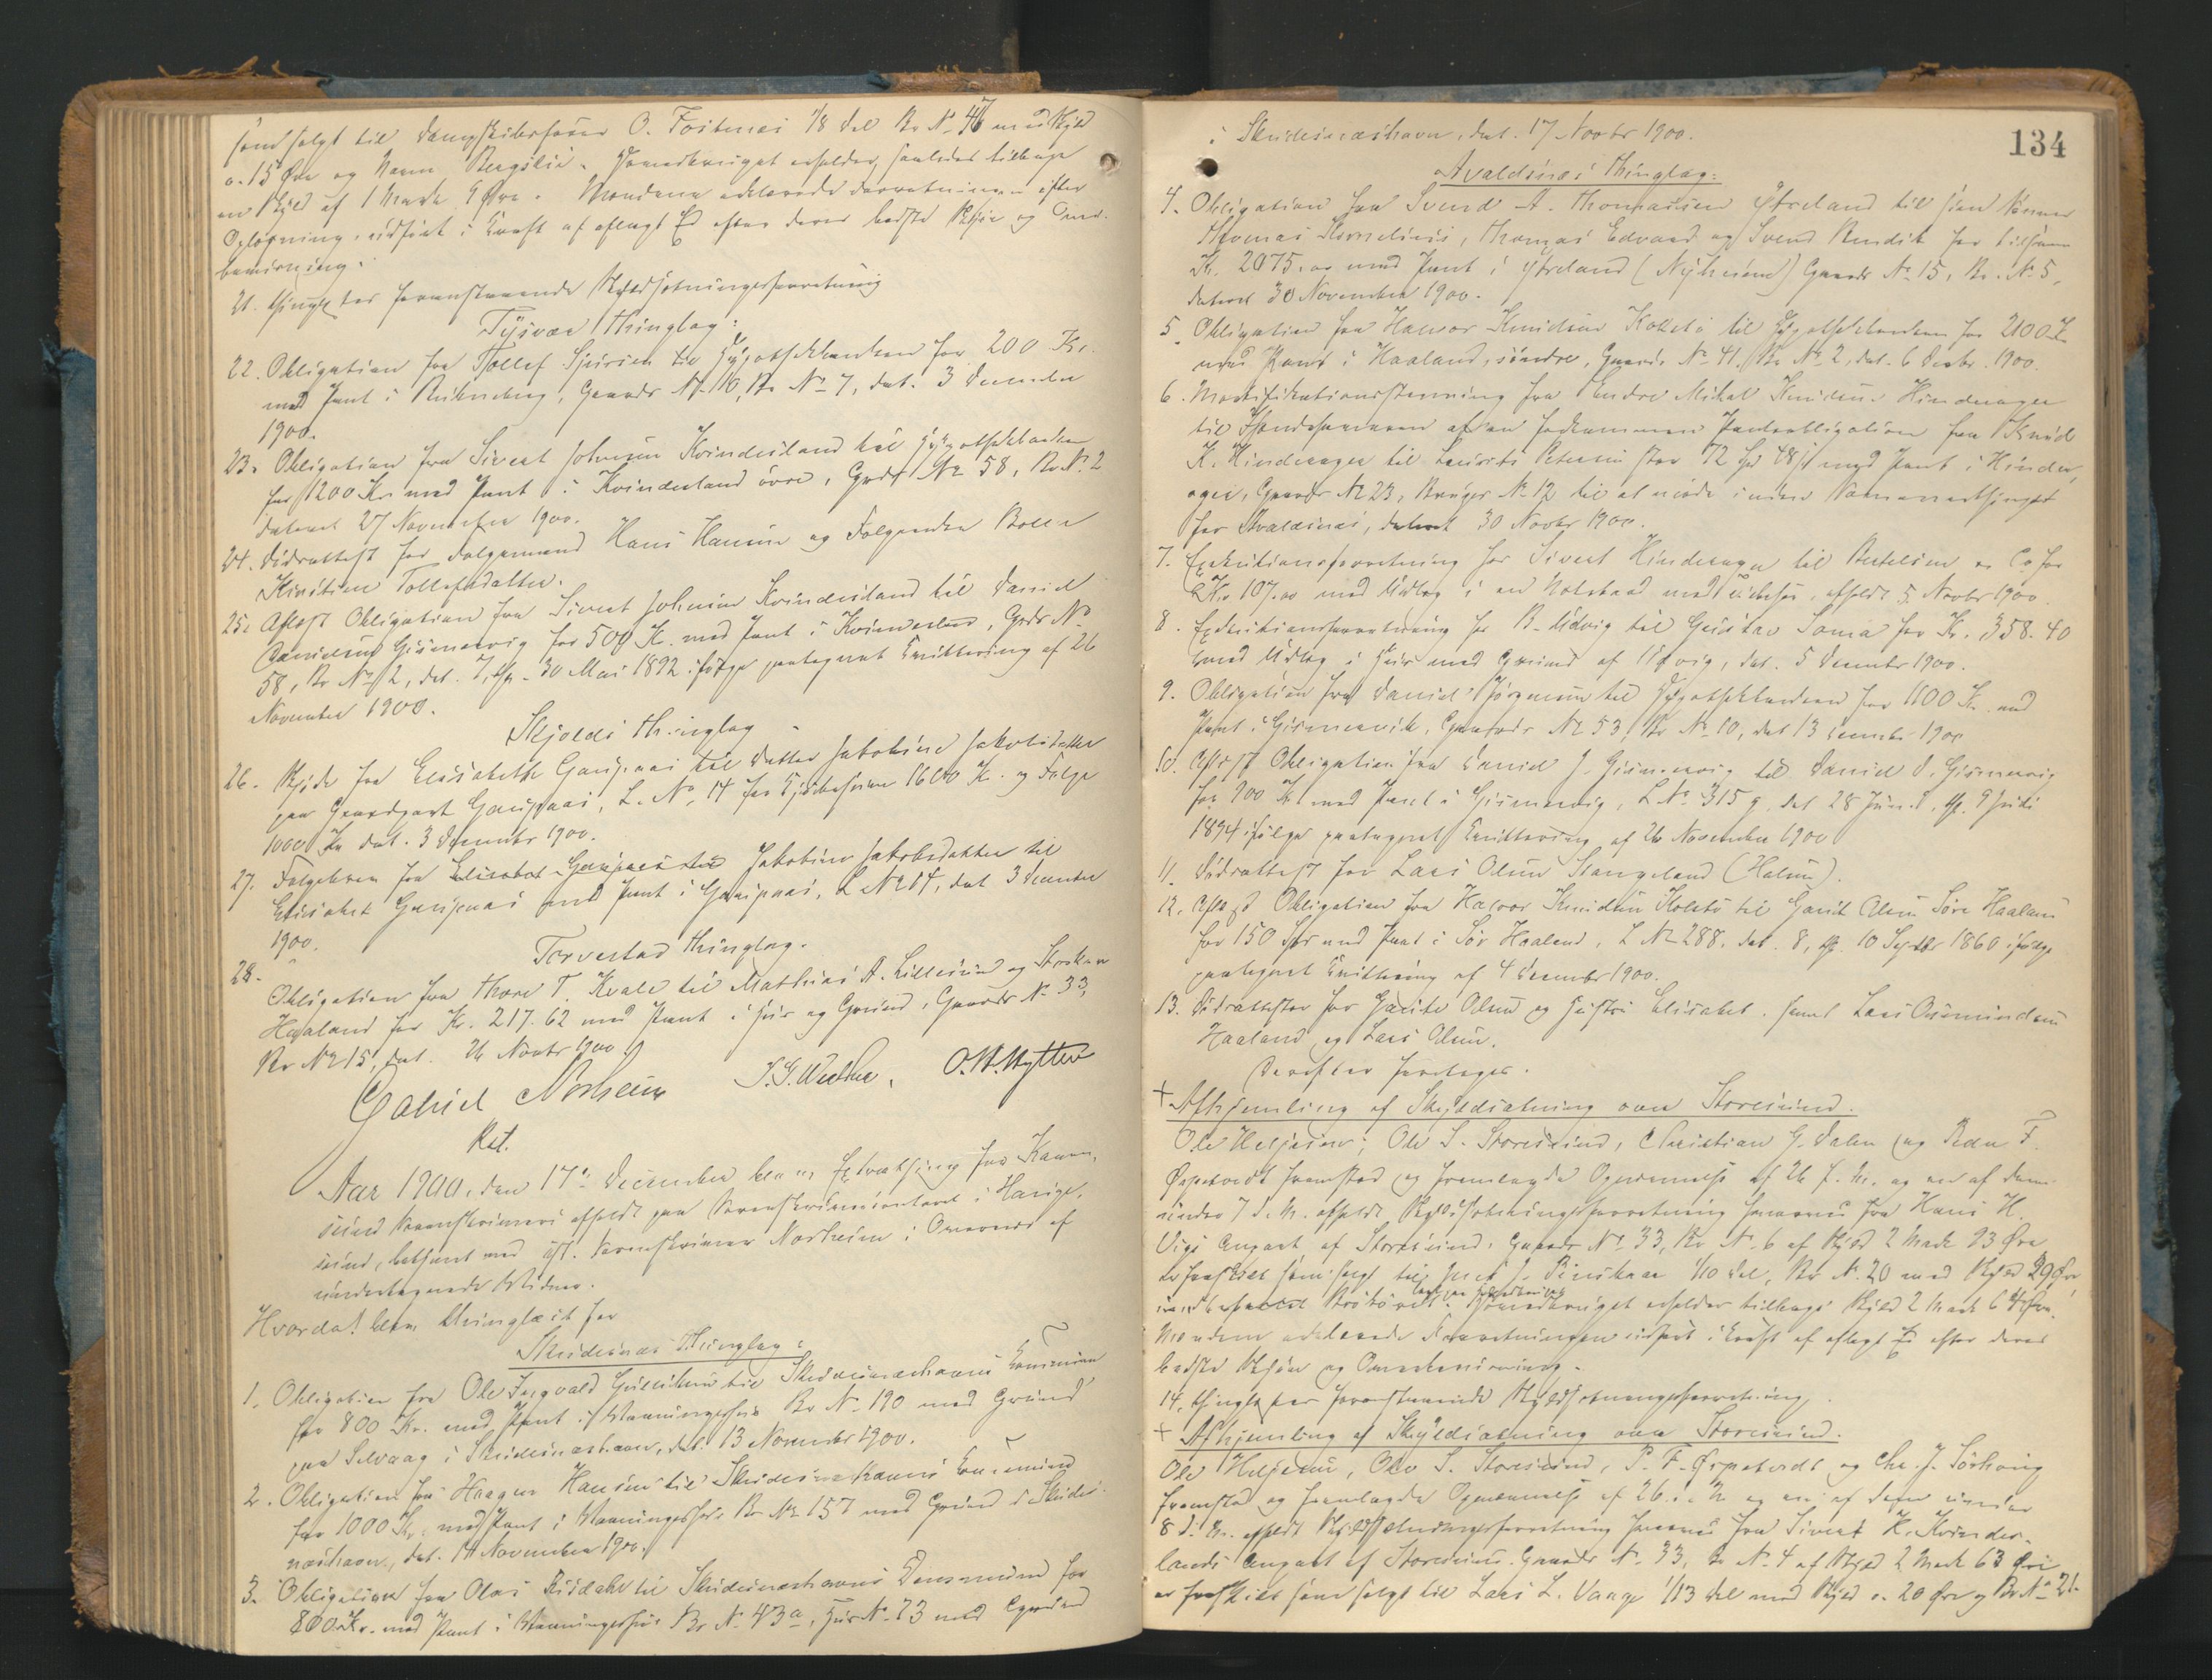 som solgt til Dampskibsfører O. Fosenes 1/8 Del Br. No 47 med Skyld
o.15 Øre og Navn Bergslie. Hovedbruget beholder saaledes tilbage
en Skyld af 1 Mark 9 Øre. Mændene erklærede Forretningen efter
Oplæsning udført i Kraft af aflagt Ed efter deres bedste Skjøn og Over-
bevisning.
21. thinglæstes foranstaaende Skyldsætningsforretning
Tysvær Thinglag:
22. Obligation fra Tollef Sjursen til Hypothekbanken for 200 Kr.
med Pant i Gaards No 10, Br No 7, dat. 3 December
1900.
23. Obligation fra Sivert Johnsen Kvindesland til Hypothekbanken
for 1200 Kr. med Pant i Kvindesland øvre, Grds No 58, Br No. 2
dateret 27 November 1900.
24. Dødsattest for Folgemand Hans Hansen og Folgeenken
Kirstine Tollefsdatter.
25. Aflæst Obligation fra Sivert Johnsen Kvindesland til Daniel
Danielsen Gismervig for 500 Kr. med Pant i Kvindesland, Grds No
58, Br No 2, dat. 7, thgl. 30 Mai 1892 ifølge paategnet Kvittering af 26
November 1900.
Skjolds Thinglag
26. Skjøde fra Elisabeth Gaupaas til Datter Jakobine Jakobsdatter
paa Gaardpart Gaupaas, L. No. 14 for Kjøbesum 1600 Kr. og Folge
1000 Kr dat. 3 December 1900.
27. Folgebrev fra Jakobine Jakobsdatter til
Elisabet Gaupaas med Pant i Gaupaas, L No 14, dat 3 December
1900.
Torvestad Thinglag.
28.
Obligation fra Thore T. Kvale til Mathias A. Lillesund og
Haaland for Kr. 217.62 med Pant i Hus og Grund, Gaards No 33,
Br No 15, dat. 26 Novbr 1900
Gabriel Norheim
O.W.Nytter
Kst.
Aar 1900, den 17de December blev Extrathing for Karm-
sund Sorenskriveri afholdt paa Sorenskriverkontoret i Hauge-
sund, betjent ved kst. Sorenskriver Norheim i Overvær af
undertegnede Vidner.
Hvorda! blev thinglæst for
Skudesnæs Thinglag:
1. Obligation fra Ole Ingvald til Skudesnæshavns Kommune
for 800 Kr. med Pant i Vaaningshus Br No 190 med Grund
paa Selvaag i Skudesnæshavn, dat. 13 November 1900.
2. Obligation fra Haagen Hansen til Skudesnæshavns
for 1000 Kr. med Pant i Vaaningshus Br No 157 med Grund i Skudes-
næshavn, dat. 14 November 1900.
3. Obligation fra Olai til Skudesnæshavns for
800 Kr. med Pant i Vaaningshus Br No 43a, Hus No 73 med Grund
134
i Skudesnæshavn, dat. 17 Novbr 1900.
Avaldsnæs Thinglag:
4. Obligation fra Svend A. Thomassen Ytreland til sine Sønner
Thomas Kornelius, Thomas Edvard og Svend Bendik for tilsammen
Kr. 2075.00 med Pant i Ytreland (Nyheim) Gaards No 15, Br. No 5,
dateret 30 November 1900.
5. Obligation fra Halvor Knudsen Kolstø til Hypothekbanken for 2100 Kr
med Pant i Haaland, søndre, Gaards No 41, Br No 2, dat. 6 Decbr. 1900.
6. Mortifikationsstævning fra Endre Mikal Knudsen Hinderager
til Ihændehaveren af en forkommen Panteobligation fra Knud
K. Hinderager til Laurits Petersen stor 72 Spd 48 ß med Pant i Hinder-
ager, Gaards No 23, Brugs No 12 til at møde inden Sommerthinget
for Avaldsnæs, dateret 30 Novbr 1900.
7. Exekutionsforretning hos Sivert Hinderager til Bertelsen & Co for
Kr 107.00 med Udlæg i en Notebaad med Tilbehør, afholdt 5 Novbr 1900.
8. Exekutionsforretning hos B. Udvig til Gustav for Kr. 358.40
med Udlæg i Hus med Grund af Udvig, dat. 5 Decembr 1900.
9. Obligation fra Daniel Jørgensen til Hypothekbanken for 1100 Kr med
Pant i Gismervik, Gaards No 53, Br No 10, dat 13 Decembr 1900
10. Aflæst Obligation fra Daniel J. Gismervig til Daniel D. Gismervig
for 900 Kr med Pant i Gismervig, L No 315 g, dat 28 Juni, thgl. 9 Juli
1894 ifølge paategnet Kvittering af 26 November 1900
11. Dødsattest for Lars Olsen Stangeland (Holum).
12. Aflæst Obligation fra Halvor Knudsen Kolstø til Gaut Olsen Søre Haaland
for 150 Spd med Pant i Sør Haaland, L No 288, dat. 8, thgl. 10 Septbr 1860 ifølge
paategnet Kvittering af 4 Decembr 1900.
13. Dødsattester for Gaute Olsen og Hustru Elisabet, samt Lars Osmundsen
Haaland og Lars Olsen.
Derefter foretages:
+ Afhjemling af Skyldsætning over Storesund.
Ole Heljesen, Ole S. Storesund, Christian G. Dalen og Peder F.
Ørpetvedt fremstod og fremlagde Opnævnelse af 26 f. M. og en af dem
under 7 d. M. afholdt Skyldsætningsforretning hvorved fra Hans H.
Vigs Anpart af Storesund, Gaards No 33, Br No 6 af Skyld 2 Mark 93 Øre
er fraskilt som solgt til 1/10 Del, Br No. 20 med Skyld 29 Øre,
Hovedbruget beholder tilbage Skyld 2 Mark 64 Øre.
Mændene erklærede Forretningen udført i Kraft af aflagt Ed efter deres
bedste Skjøn og Overbevisning.
14. thinglæstes foranstaaende Skyldsætningsforretning.
+ Afhjemling af Skyldsætning over Storesund.
Ole Heljesen, Ole S. Storesund, P. F. Ørpetvedt og Chr. J. Sørhaug
fremstod og fremlagde Opnævnelse af 26 f. M og en af dem under
8 d. M. afholdt Skyldsætningsforretning hvorved fra Sivert K. Kvindes-
lands Anpart af Storesund Gaards No. 33, Br No 4 af Skyld 2 Mark 63 Øre
er fraskilt som solgt til Lars L. Vaage 1/13 Del med Skyld o. 20 Øre og Br No 21.